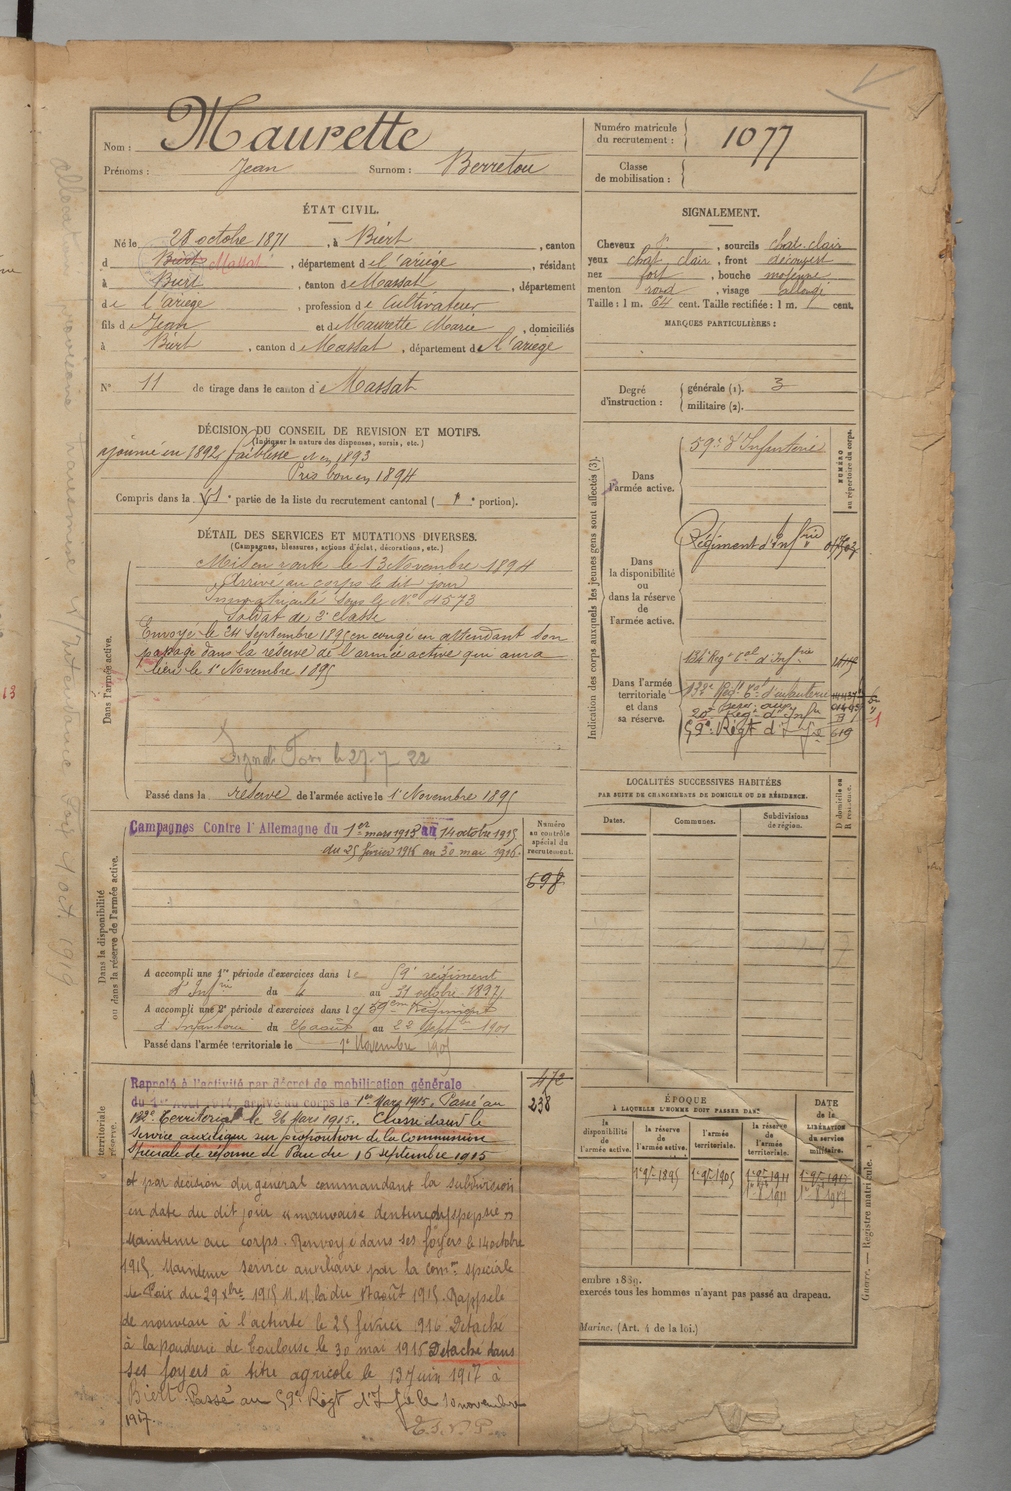 Nom : Maurette
Prénoms : Jean Surnom : Berretou
Numéro matricule du recrutement : 1077
Classe de mobilisation :
ÉTAT CIVIL.
Né le 28 octobre 1871, à Biert, canton
d Biert Massat, département de l'ariège, résidant
à Biert, canton de Massat, département
de l'ariège, profession de Cultivateur
fils de Jean et de Maurette Marie, domiciliés
à Biert, canton de Massat, département de l'ariège
N° 11 de tirage dans le canton de Massat
SIGNALEMENT.
Cheveux, sourcils chat. clair
yeux chat. clair, front découvert
nez fort, bouche moyenne
menton rond, visage allongé
Taille : 1 m. 64 cent. Taille rectifiée : 1 m. cent.
MARQUES PARTICULIÈRES :
Degré d'instruction : générale (1). 3
militaire (2).
DÉCISION DU CONSEIL DE REVISION ET MOTIFS.
(Indiquer la nature des dispenses, sursis, etc.)
ajourné en 1892 faiblesse en 1893
Pris bon en 1894
Compris dans la 1e partie de la liste du recrutement cantonal ( portion).
DÉTAIL DES SERVICES ET MUTATIONS DIVERSES.
(Campagnes, blessures, actions d'éclat, décorations, etc.)
Dans l'armée active.
Mis en route le 13 Novembre 1894
Arrivé au corps le dit jour
Immatriculé sous le N° 4573
Soldat de 2e classe
Envoyé le 24 septembre 1895 en congé en attendant son
passage dans la réserve de l'armée active qui aura
lieu le 1er Novembre 1895
le 27-7-22
Passé dans la réserve de l'armée active le 1er Novembre 1895
Indication des corps auxquels les jeunes gens sont affectés (3).
NUMÉRO au répertoire du corps.
Dans l'armée active.
59e d'Infanterie
Dans la disponibilité ou dans la réserve de l'armée active.
Régiment d'Infrie
Dans l'armée territoriale et dans sa réserve.
134e Régt tal d'Infrie
132e Régt tal d'infanterie
20e Régt d'Infie
59e Régt d'Ifie 619
LOCALITÉS SUCCESSIVES HABITÉES
PAR SUITE DE CHANGEMENTS DE DOMICILE OU DE RÉSIDENCE.
Dates. Communes. Subdivisions de région. D domicile ou R résidence.
Dans la disponibilité ou dans la réserve de l'armée active.
Campagnes Contre l'Allemagne du 1er mars 1915 au 14 octobre 1915
du 25 février 1916 au 30 mai 1916.
Numéro au contrôle spécial du recrutement.
698
A accompli une 1re période d'exercices dans le 59e régiment
d'Infrie du 4 au 31 octobre 1897
A accompli une 2e période d'exercices dans le 59em Régiment
d'Infanterie du 26 août au 22 septbre 1901
Passé dans l'armée territoriale le 1er Novembre 1905
territoriale
réserve.
472
238
Rappelé à l'activité par décret de mobilisation générale
du 1er Août 1914, arrivé au corps le 1er Mars 1915. Passé au
132e Territorial le 26 Mars 1915. Classé dans le
Service auxiliaire sur proposition de la Commission
Spéciale de réforme de Pau du 16 septembre 1915
et par décision du général commandant la subdivision
en date du dit jour « mauvaise denture, dyspepsie »
Maintenu au corps. Renvoyé dans ses foyers le 14 octobre
1915. Maintenu service auxiliaire par la comon spéciale
de Foix du 29 xbre 1915 M. M. loi du 17 août 1915. Rappelé
de nouveau à l'activité le 25 février 916 Détaché
à la poudrerie de Toulouse le 30 mai 1916 Détaché dans
ses foyers à titre agricole le 13 juin 1917 à
Biert. Passé au 59e Régt d'Ifie le 10 novembre
1917.
T.S.V.P.
ÉPOQUE
À LAQUELLE L'HOMME DOIT PASSER DANS
la disponibilité de l'armée active.
la réserve de l'armée active.
l'armée territoriale.
la réserve de l'armée territoriale.
DATE de la LIBÉRATION du service militaire.
1er 9bre 1895 1er 9bre 1905 1er 9bre 1911 1er 9bre 1917
embre 1889.
exercés tous les hommes n'ayant pas passé au drapeau.
Marine. (Art. 4 de la loi.)
Guerre. — Registre matricule.